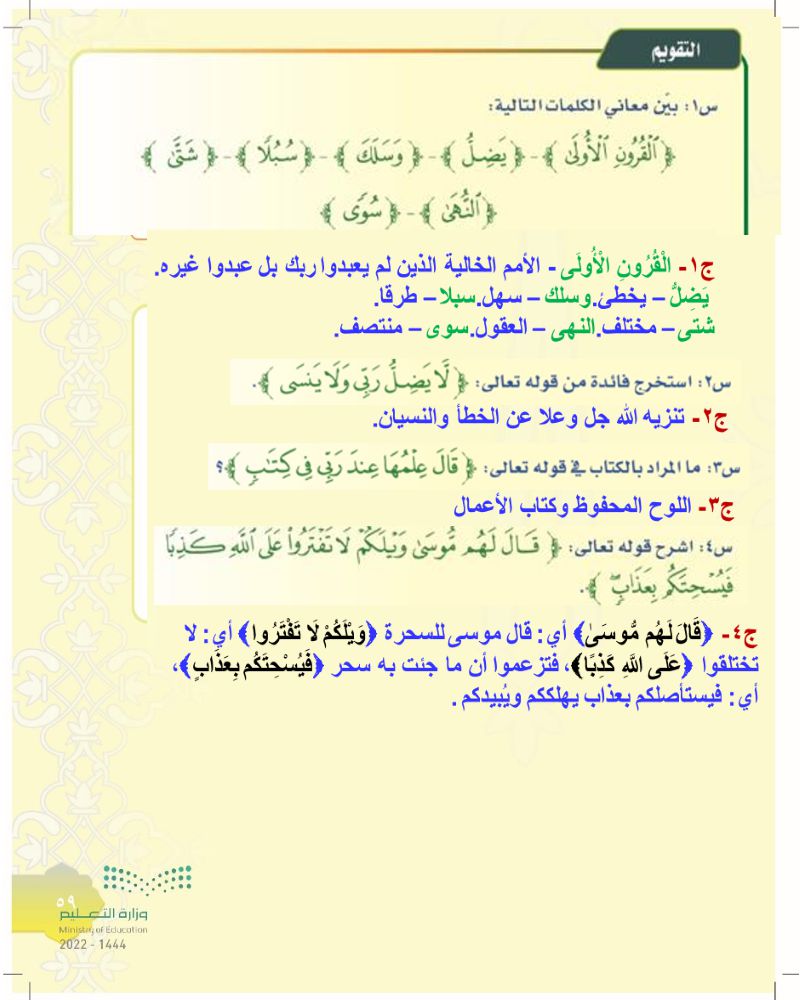 التقويم
س١: بيّن معاني الكلمات التالية:
﴿ ٱلْقُرُونِ ٱلْأُولَىٰ ﴾ - ﴿ يَضِلُّ ﴾ - ﴿ وَسَلَكَ ﴾ - ﴿ سُبُلًا ﴾ - ﴿ شَتَّىٰ ﴾
﴿ ٱلنُّهَىٰ ﴾ - ﴿ سُوًى ﴾
ج١- الْقُرُونِ الْأُولَى - الأمم الخالية الذين لم يعبدوا ربك بل عبدوا غيره.
يَضِلُّ – يخطئ.وسلك – سهل.سبلا – طرقا.
شتى – مختلف.النهى – العقول.سوى – منتصف.
س٢: استخرج فائدة من قوله تعالى: ﴿ لَّا يَضِلُّ رَبِّى وَلَا يَنسَى ﴾.
ج٢- تنزيه الله جل وعلا عن الخطأ والنسيان.
س٣: ما المراد بالكتاب في قوله تعالى: ﴿ قَالَ عِلْمُهَا عِندَ رَبِّى فِى كِتَٰبٍ ﴾؟
ج٣- اللوح المحفوظ وكتاب الأعمال
س٤: اشرح قوله تعالى: ﴿ قَالَ لَهُم مُّوسَىٰ وَيْلَكُمْ لَا تَفْتَرُوا۟ عَلَى ٱللَّهِ كَذِبًا
فَيُسْحِتَكُم بِعَذَابٍ ﴾.
ج٤- ﴿قَالَ لَهُم مُّوسَىٰ﴾ أي: قال موسى للسحرة ﴿وَيْلَكُمْ لَا تَفْتَرُوا﴾ أي: لا
تختلقوا ﴿عَلَى اللَّهِ كَذِبًا﴾، فتزعموا أن ما جئت به سحر ﴿فَيُسْحِتَكُم بِعَذَابٍ﴾،
أي: فيستأصلكم بعذاب يهلككم ويُبيدكم.
٥٩
وزارة التعليم
Ministry of Education
2022 - 1444